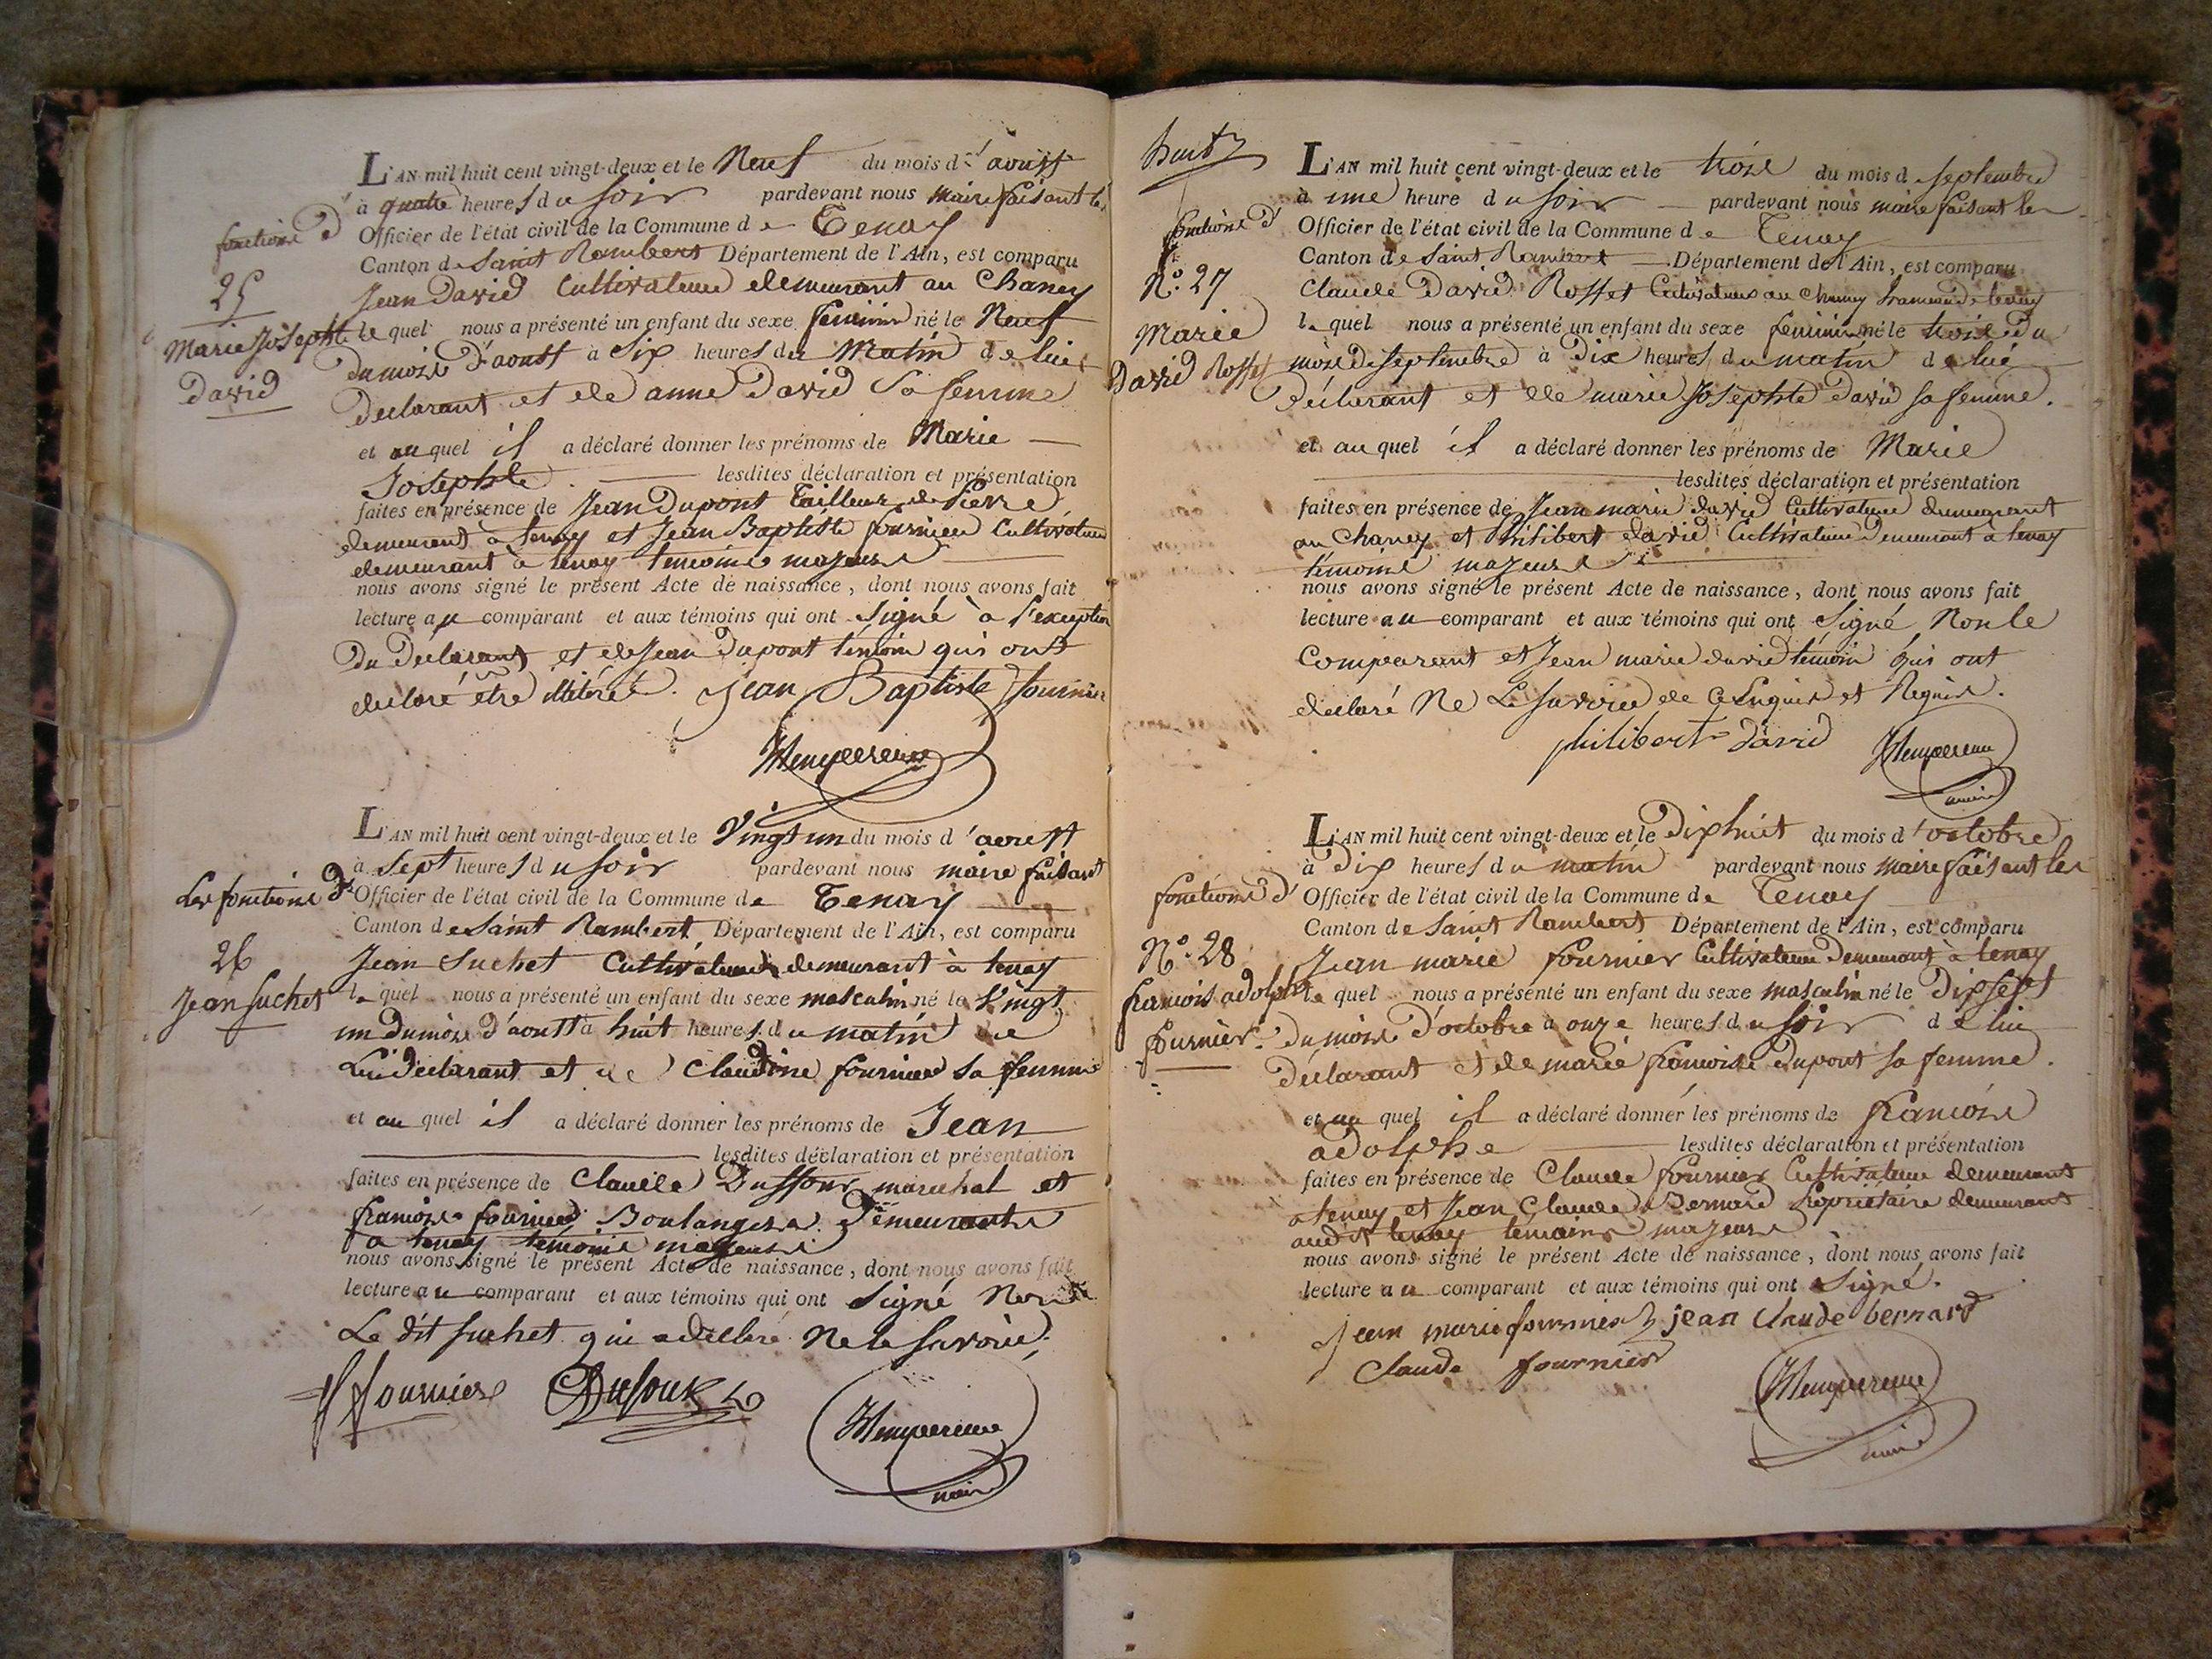 L'AN mil huit cent vingt-deux et le Neuf du mois d'aoust
à quatre heures du soir pardevant nous maire faisant les
fonctions d'
Officier de l'état civil de la Commune de Tenay
Canton de Saint Rambert Département de l'Ain, est comparu
25
Marie Josephte
David
Jean David Cultivateur demeurant au Chaney
lequel nous a présenté un enfant du sexe feminin né le Neuf
du mois d'aoust à Six heures du Matin de lui
Declarant et de anne David Sa femme
et auquel il a déclaré donner les prénoms de Marie
Josephte lesdites déclaration et présentation
faites en présence de Jean Dupont Tailleur de Pierre
demeurant à tenay et Jean Baptiste fournier Cultivateur
demeurant à tenay temoins majeurs
nous avons signé le présent Acte de naissance, dont nous avons fait
lecture au comparant et aux témoins qui ont signé à l'exception
Du Declarant et de Jean Dupont temoin qui ont
declaré etre illiteré. Jean Baptiste fournier
L'AN mil huit cent vingt-deux et le Vingt un du mois d'aoust
à Sept heures du soir pardevant nous maire faisant
Les fonctions d'
Officier de l'état civil de la Commune de Tenay
Canton de Saint Rambert Département de l'Ain, est comparu
26
Jean Suchet
Jean Suchet Cultivateur demeurant à tenay
lequel nous a présenté un enfant du sexe masculin né le Vingt
un du mois d'aoust à huit heures du matin de
Lui declarant et de Claudine fournier sa femme
et auquel il a déclaré donner les prénoms de Jean
lesdites déclaration et présentation
faites en présence de Claude Dussour marechal et
françois fournier Boulanger Demeurants
a tenay temoins majeurs
nous avons signé le présent Acte de naissance, dont nous avons fait
lecture au comparant et aux témoins qui ont signé Non
Le dit Suchet qui a declaré Ne le savoir.
fournier Dusour
maire
huit
L'AN mil huit cent vingt-deux et le trois du mois de septembre
à une heure du soir pardevant nous maire faisant les
fonctions d'
Officier de l'état civil de la Commune de Tenay
Canton de Saint Rambert Département de l'Ain, est comparu
N.° 27
Marie
David Rosset
Claude David Rosset Cultivateur au Chaney hameau de tenay
lequel nous a présenté un enfant du sexe feminin né le trois du
mois de septembre à Dix heures du matin de lui
Déclarant et de marie Josephte David sa femme.
et auquel il a déclaré donner les prénoms de Marie
lesdites déclaration et présentation
faites en présence de Jean marie david Cultivateur demeurant
au Chaney et Philibert david Cultivateur Demeurant à tenay
témoins majeurs
nous avons signé le présent Acte de naissance, dont nous avons fait
lecture au comparant et aux témoins qui ont signé Non le
Comparant et Jean marie david temoin qui ont
declaré Ne Le savoir de Ce Enquis et Requis.
philibert David
maire
L'AN mil huit cent vingt-deux et le Dix huit du mois d'octobre
à Dix heures du matin pardevant nous maire faisant les
fonctions d'
Officier de l'état civil de la Commune de Tenay
Canton de Saint Rambert Département de l'Ain, est comparu
N.° 28
francois adolphe
fournier
Jean marie fournier Cultivateur Demeurant à tenay
lequel nous a présenté un enfant du sexe masculin né le Dix sept
Du mois d'octobre à onze heures du soir de lui
Déclarant et de marie francoise Dupont sa femme.
et auquel il a déclaré donner les prénoms de francois
adolphe lesdites déclaration et présentation
faites en présence de Claude fournier Cultivateur demeurant
a tenay et Jean Claude Bernard Propriétaire demeurant
audit tenay témoins majeurs
nous avons signé le présent Acte de naissance, dont nous avons fait
lecture au comparant et aux témoins qui ont signé.
jean marie fournier jean claude bernard
claude fournier
maire